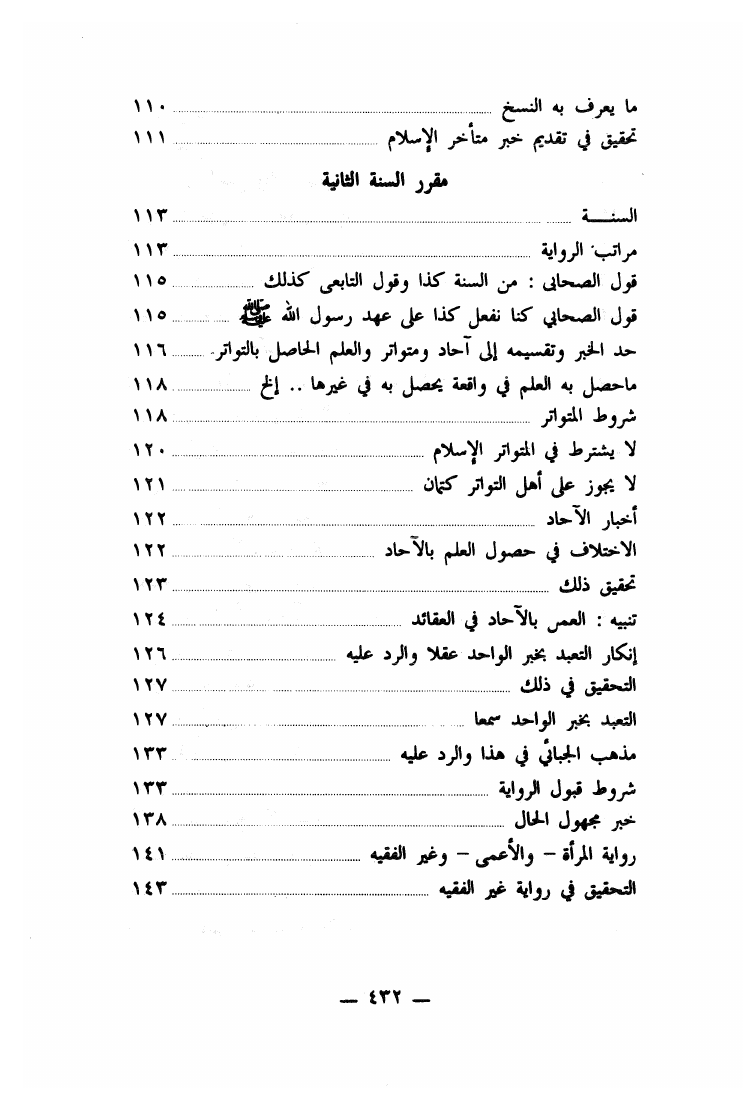 ما يعرف به النسخ ........ ١١٠
تحقيق في تقديم خبر متأخر الإسلام ........ ١١١
مقرر السنة الثانية
السنـــة ........ ١١٣
مراتب الرواية ........ ١١٣
قول الصحابى : من السنة كذا وقول التابعى كذلك ........ ١١٥
قول الصحابي كنا نفعل كذا على عهد رسول الله ﷺ ........ ١١٥
حد الخبر وتقسيمه إلى آحاد ومتواتر والعلم الحاصل بالتواتر ........ ١١٦
ماحصل به العلم في واقعة يحصل به في غيرها .. إلخ ........ ١١٨
شروط المتواتر ........ ١١٨
لا يشترط في المتواتر الإسلام ........ ١٢٠
لا يجوز على أهل التواتر كتمان ........ ١٢١
أخبار الآحاد ........ ١٢٢
الاختلاف في حصول العلم بالآحاد ........ ١٢٢
تحقيق ذلك ........ ١٢٣
تنبيه : العمس بالآحاد في العقائد ........ ١٢٤
إنكار التعبد بخبر الواحد عقلا والرد عليه ........ ١٢٦
التحقيق في ذلك ........ ١٢٧
التعبد بخبر الواحد سمعا ........ ١٢٧
مذهب الجبائي في هذا والرد عليه ........ ١٣٣
شروط قبول الرواية ........ ١٣٣
خبر مجهول الحال ........ ١٣٨
رواية المرأة – والأعمى – وغير الفقيه ........ ١٤١
التحقيق في رواية غير الفقيه ........ ١٤٣
— ٤٣٢ —